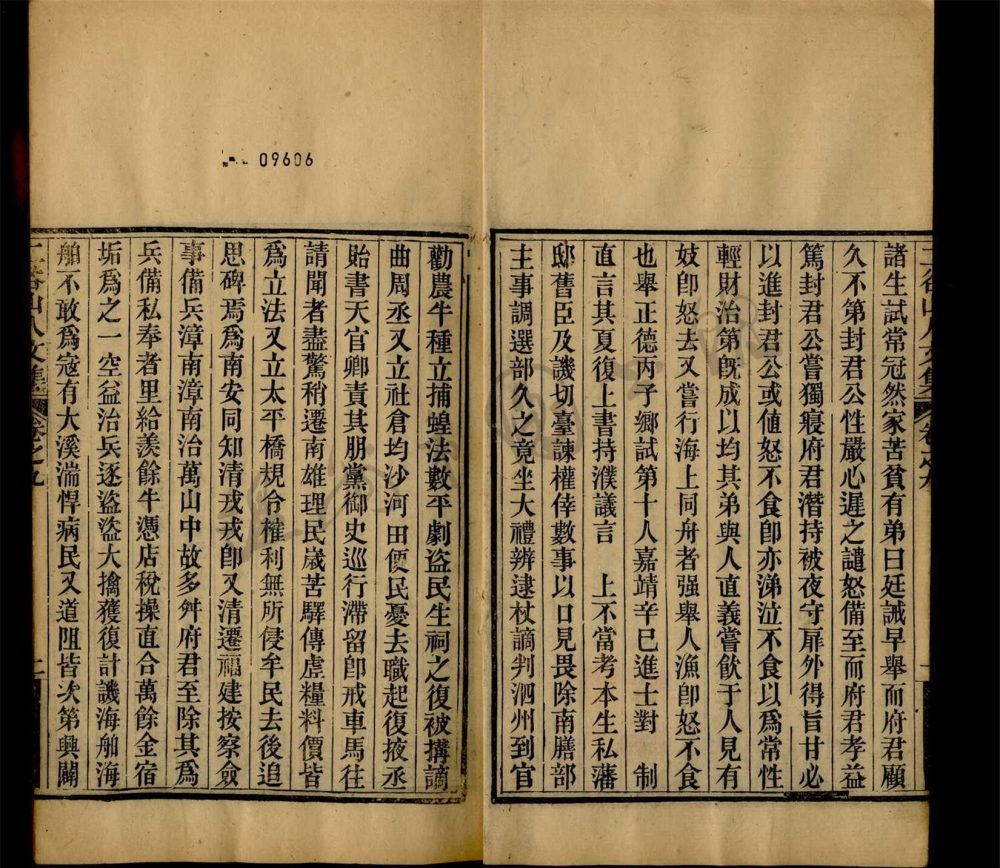 09606
諸生試常冠然家苦貧有弟曰廷誠早舉而府君顧
久不第封君公性嚴心遲之譴怒備至而府君孝益
篤封君公嘗獨寢府君潛持被夜守扉外得旨甘必
以進封君公或值怒不食卽亦涕泣不食以爲常性
輕財治第旣成以均其弟與人直義嘗飮于人見有
妓卽怒去又嘗行海上同舟者强舉人漁卽怒不食
也舉正德丙子鄉試第十人嘉靖辛巳進士對 制
直言其夏復上書持濮議言 上不當考本生私藩
邸舊臣及譏切臺諫權倖數事以口見畏除南膳部
主事調選部久之竟坐大禮辨逮杖謫判泗州到官
勸農牛種立捕蝗法數平劇盜民生祠之復被搆謫
曲周丞又立社倉均沙河田便民憂去職起復掖丞
貽書天官卿責其朋黨御史巡行滯留卽戒車馬往
請聞者盡驚稍遷南雄理民歲苦驛傳虛糧料價皆
爲立法又立太平橋規令權利無所侵牟民去後追
思碑焉爲南安同知清戎戎卽又清遷福建按察僉
事備兵漳南漳南治萬山中故多舛府君至除其爲
兵備私奉者里給羨餘牛憑店稅操直合萬餘金宿
垢爲之一空益治兵逐盜盜大擒獲復計譏海舶海
舶不敢爲寇有大溪湍悍病民又道阻皆次第興闢
二谷山人文集 卷之九